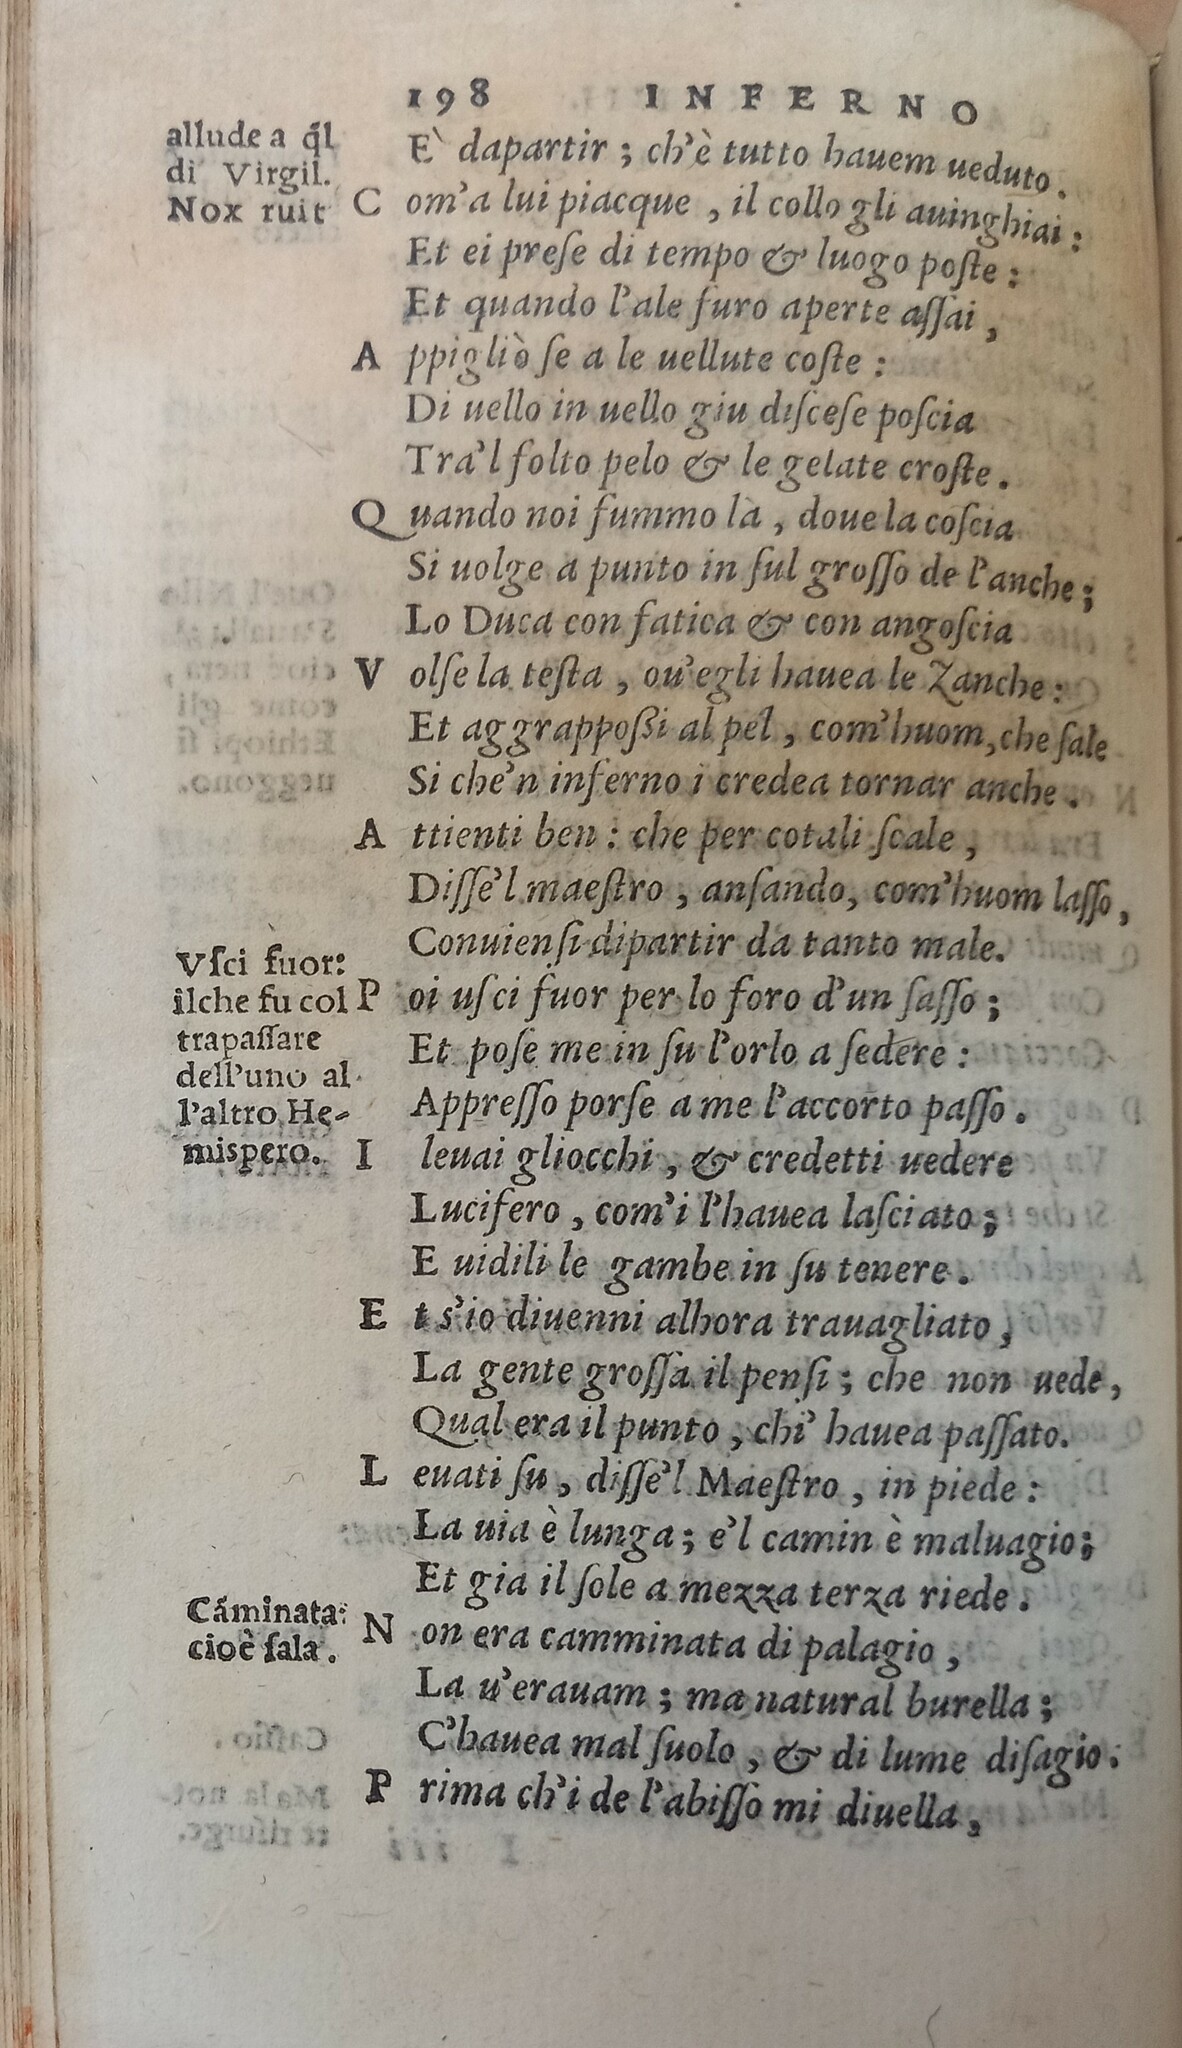 198 INFERNO
allude a q̃l
di Virgil.
Nox ruit
È dapartir; ch'è tutto hauem ueduto.
Com'a lui piacque, il collo gli auinghiai:
Et ei preſe di tempo & luogo poſte:
Et quando l'ale furo aperte aſſai,
Appigliò ſe a le uellute coſte:
Di uello in uello giu diſceſe poſcia
Tra'l folto pelo & le gelate croſte.
Quando noi fummo là, doue la coſcia
Si uolge a punto in ſul groſſo de l'anche;
Lo Duca con fatica & con angoſcia
Volſe la teſta, ou'egli hauea le Zanche:
Et aggrappoßi al pel, com'huom, che ſale
Si che'n inferno i credea tornar anche.
Attienti ben: che per cotali ſcale,
Diſſe'l maeſtro, anſando, com'huom laſſo,
Conuienſi dipartir da tanto male.
Vſci fuor:
ilche fu col
trapaſſare
dell'uno al
l'altro He-
miſpero.
Poi uſci fuor per lo foro d'un ſaſſo;
Et poſe me in ſu l'orlo a ſedere:
Appreſſo porſe a me l'accorto paſſo.
I leuai gliocchi, & credetti uedere
Lucifero, com'i l'hauea laſciato;
E uidili le gambe in ſu tenere.
Et s'io diuenni alhora trauagliato,
La gente groſſa il penſi; che non uede,
Qual era il punto, chi' hauea paſſato.
Leuati ſu, diſſe'l Maeſtro, in piede:
La uia è lunga; e'l camin è maluagio;
Et gia il ſole a mezza terza riede.
Cáminata:
cioè ſala.
Non era camminata di palagio,
La u'erauam; ma natural burella;
C'hauea mal ſuolo, & di lume diſagio.
Prima ch'i de l'abiſſo mi diuella,